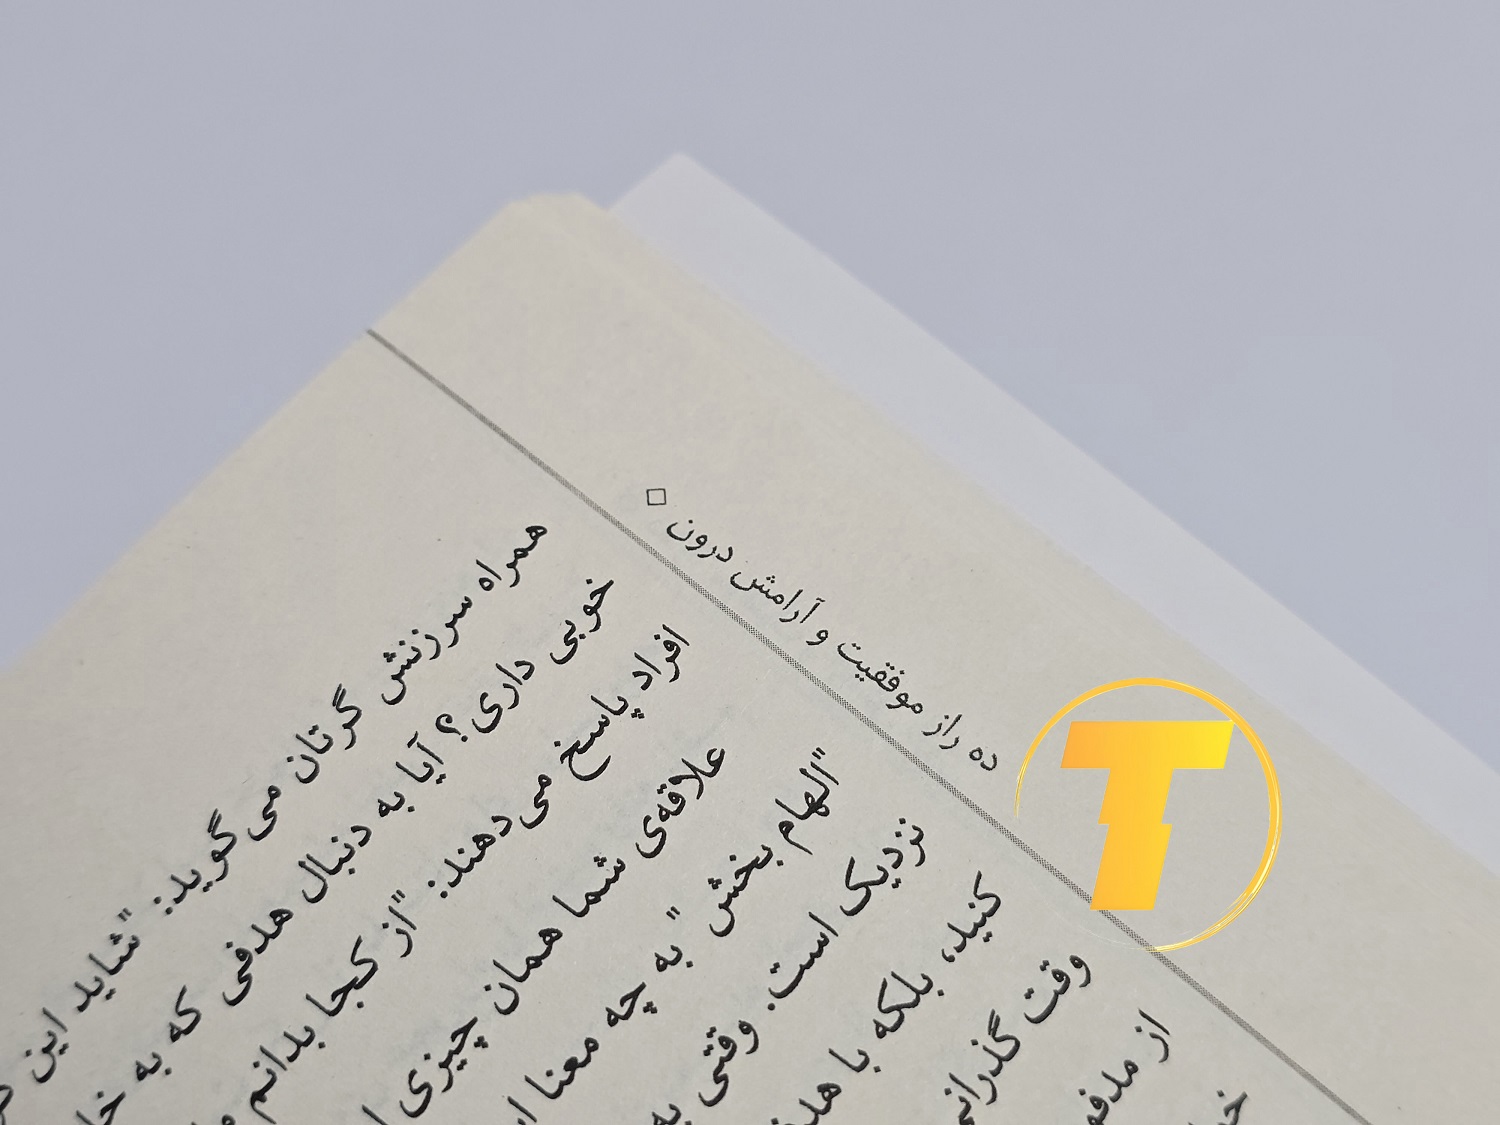 ده راز موفقیت و آرامش درون
همراه سرزنش گرتان می گوید: "شاید این
خوبی داری؟ آیا به دنبال هدفی که به
افراد پاسخ می دهند: "از کجا بدانم
علاقه‌ی شما همان چیزی
"الهام بخش" به چه معنا
نزدیک است. وقتی به
کنید، بلکه با
وقت
از
T